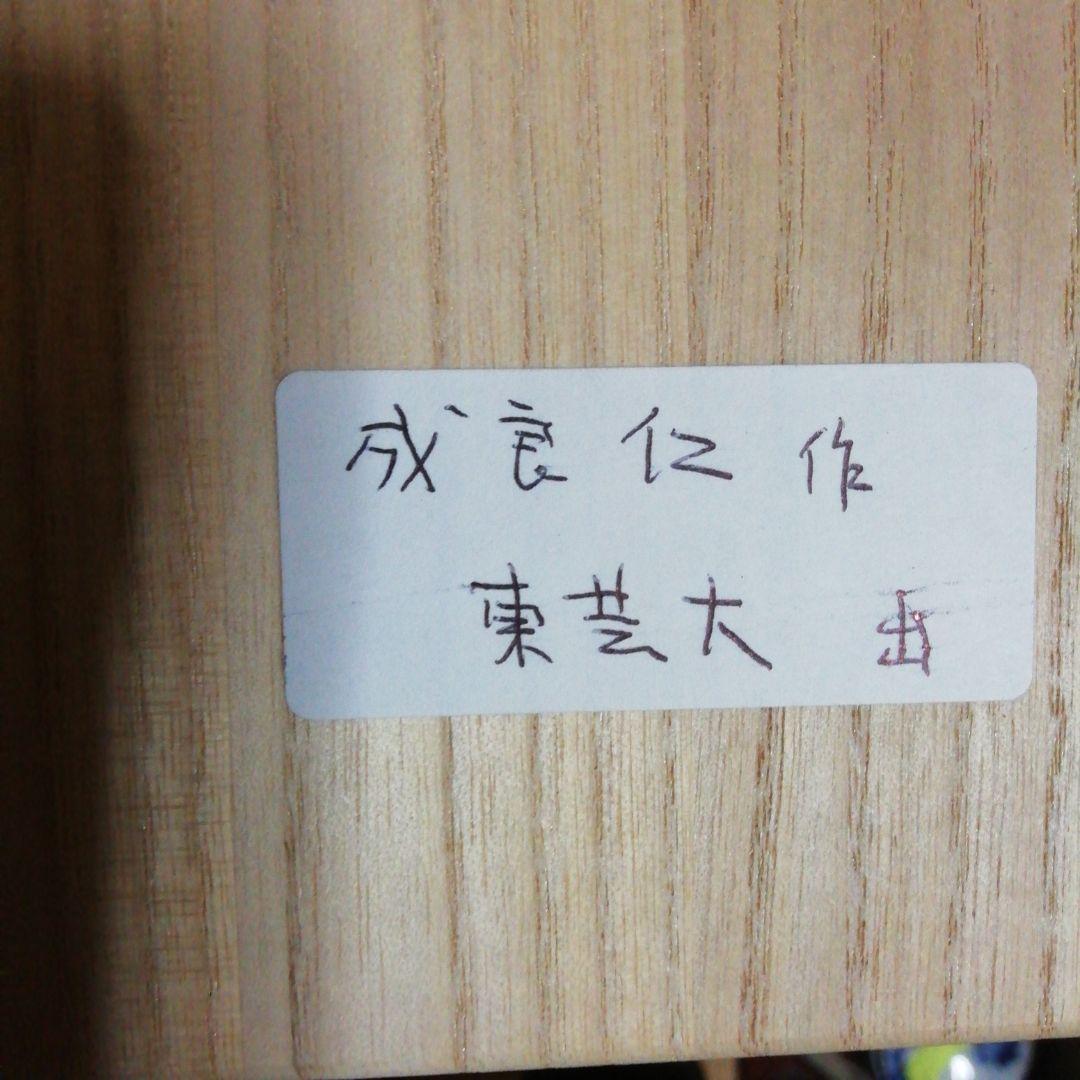 成良仁 作
東芸大 出